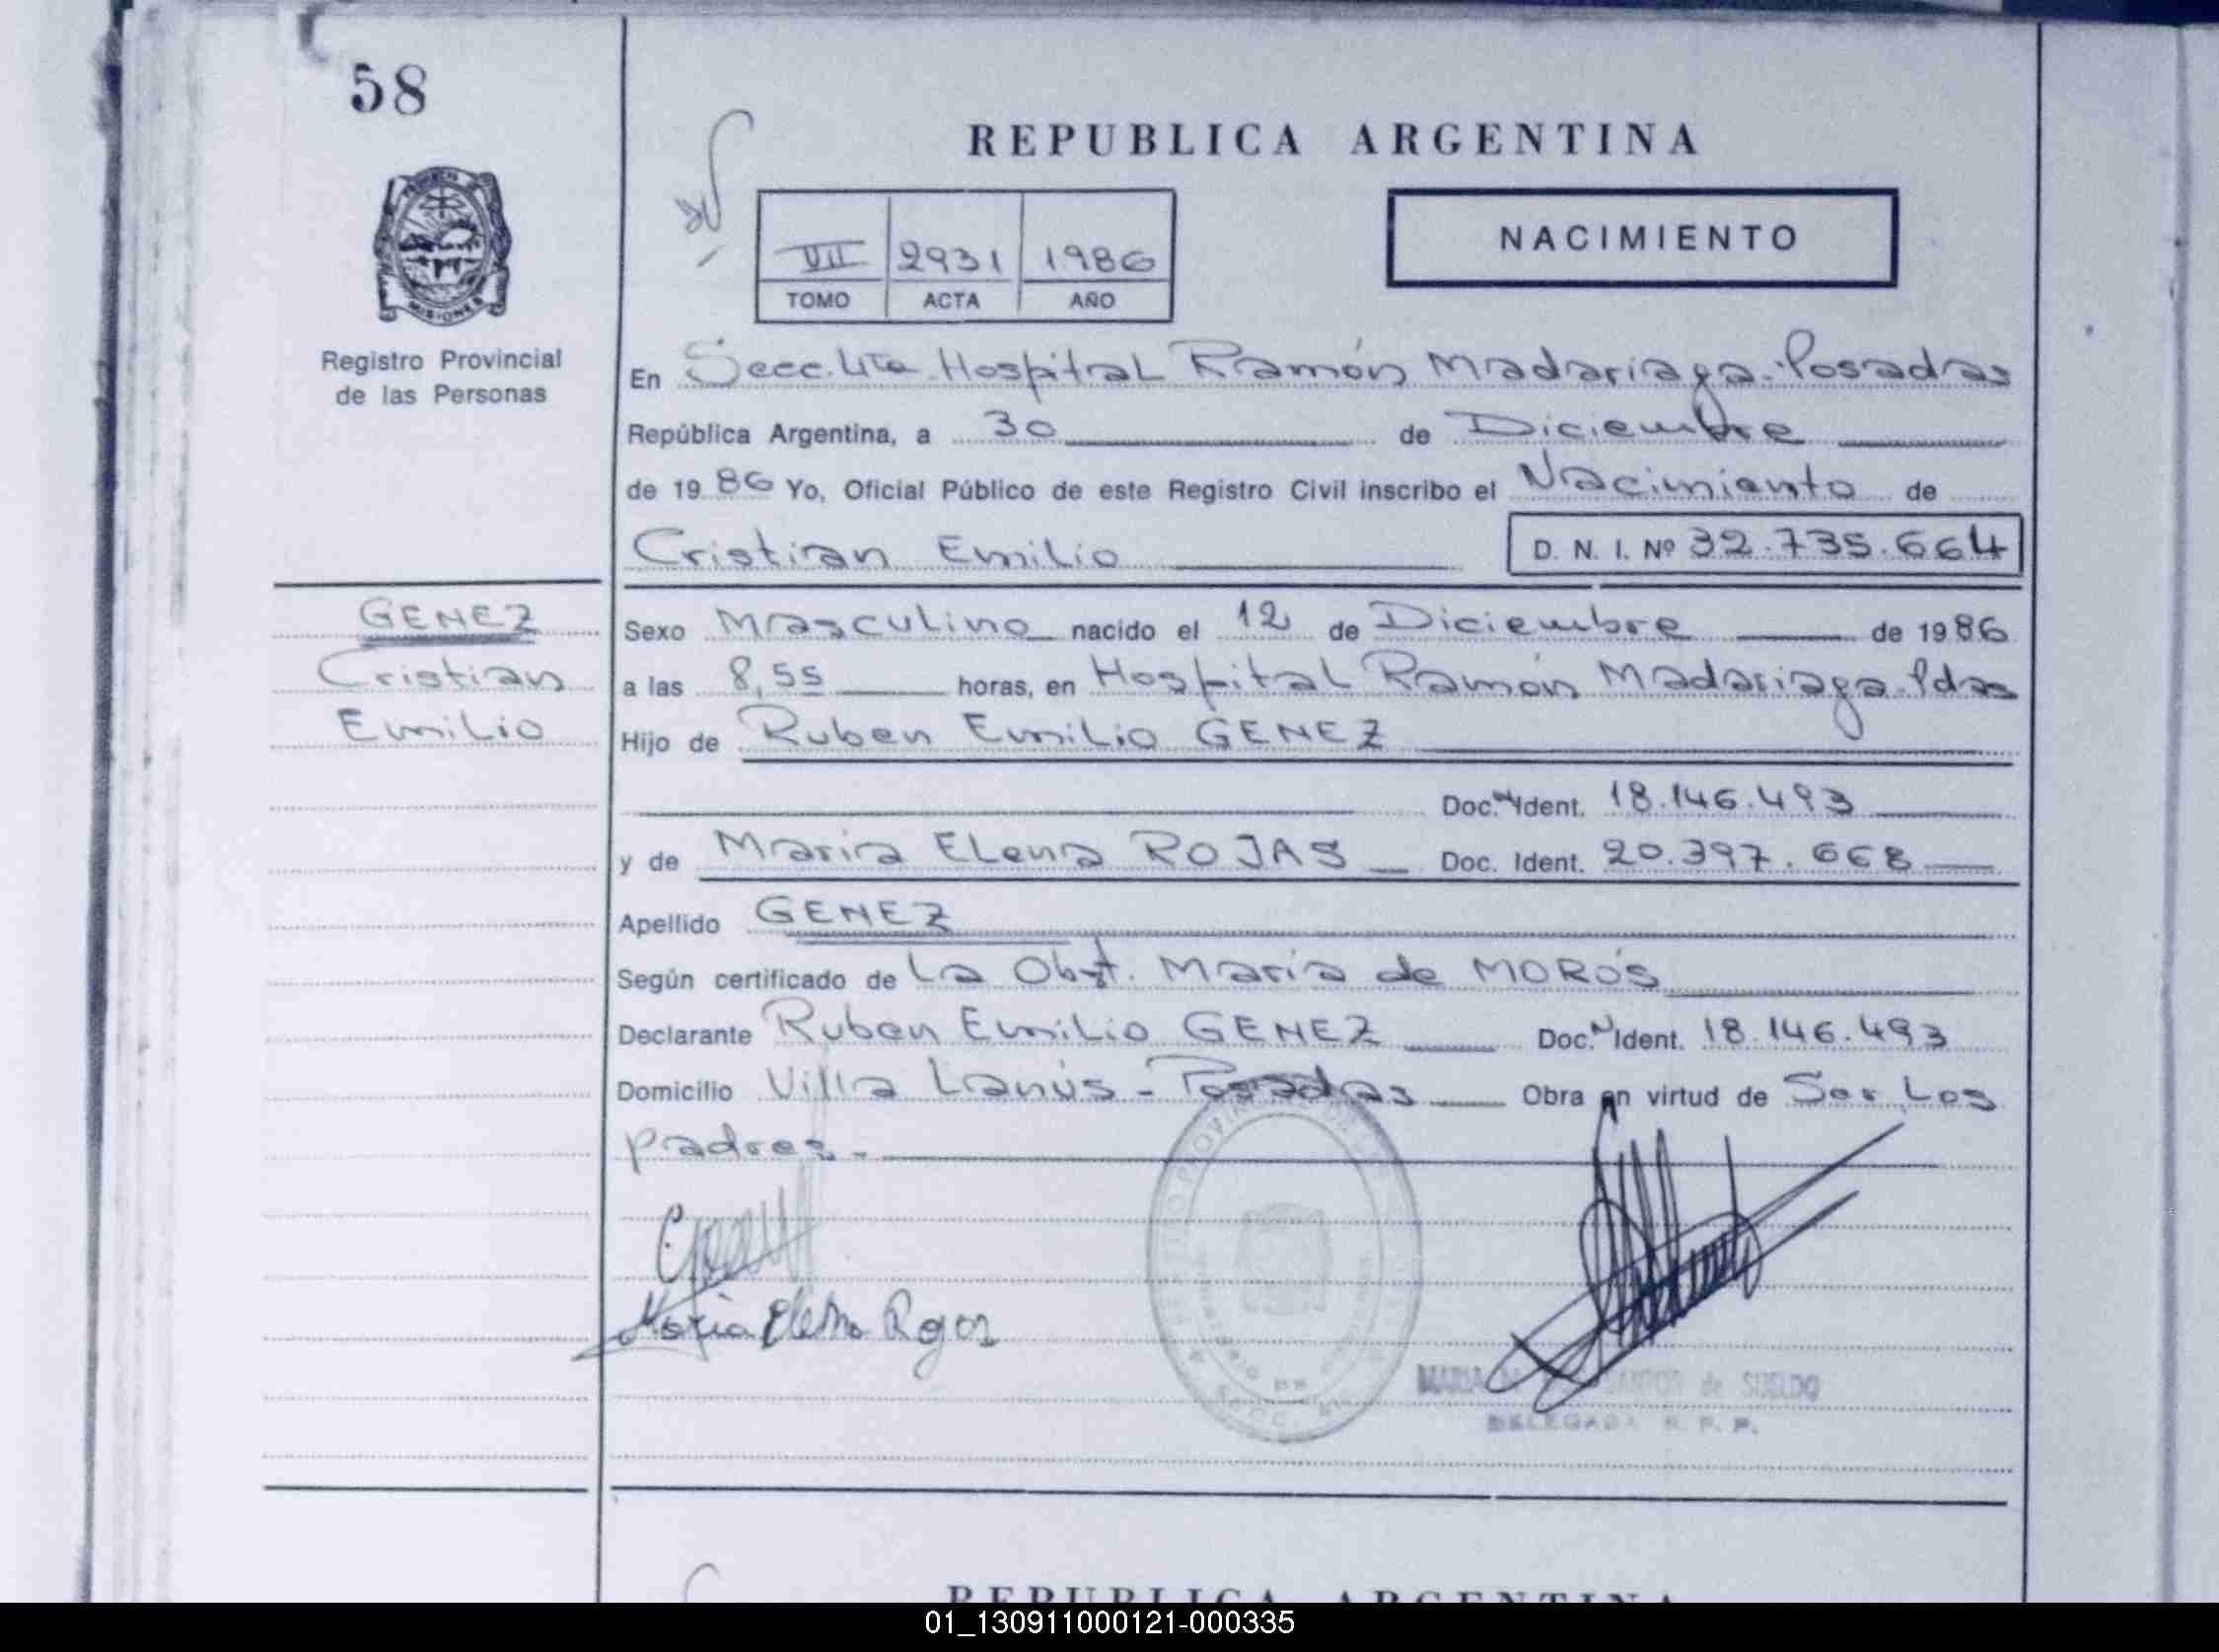 58
REPUBLICA ARGENTINA
VII 2931 1986
TOMO ACTA AÑO
NACIMIENTO
MISIONES
Registro Provincial
de las Personas
En Secc. 4ta Hospital Ramón Madariaga-Posadas
República Argentina, a 30 de Diciembre
de 1986 Yo, Oficial Público de este Registro Civil inscribo el Nacimiento de
Cristian Emilio D. N. I. Nº 32.735.664
GENEZ
Cristian
Emilio
Sexo Masculino nacido el 12 de Diciembre de 1986
a las 8,55 horas, en Hospital Ramón Madariaga-Pdas
Hijo de Ruben Emilio GENEZ
Doc. N Ident. 18.146.493
y de Maria Elena ROJAS Doc. Ident. 20.397.668
Apellido GENEZ
Según certificado de La Obst. María de MORÓS
Declarante Ruben Emilio GENEZ Doc. N Ident. 18.146.493
Domicilio Villa Lanús - Posadas Obra en virtud de Ser Los
padres.-
Maria Elena Rojas
MARIA SANTOR de SUELDO
DELEGADA R. P. P.
REPUBLICA ARGENTINA
01_130911000121-000335